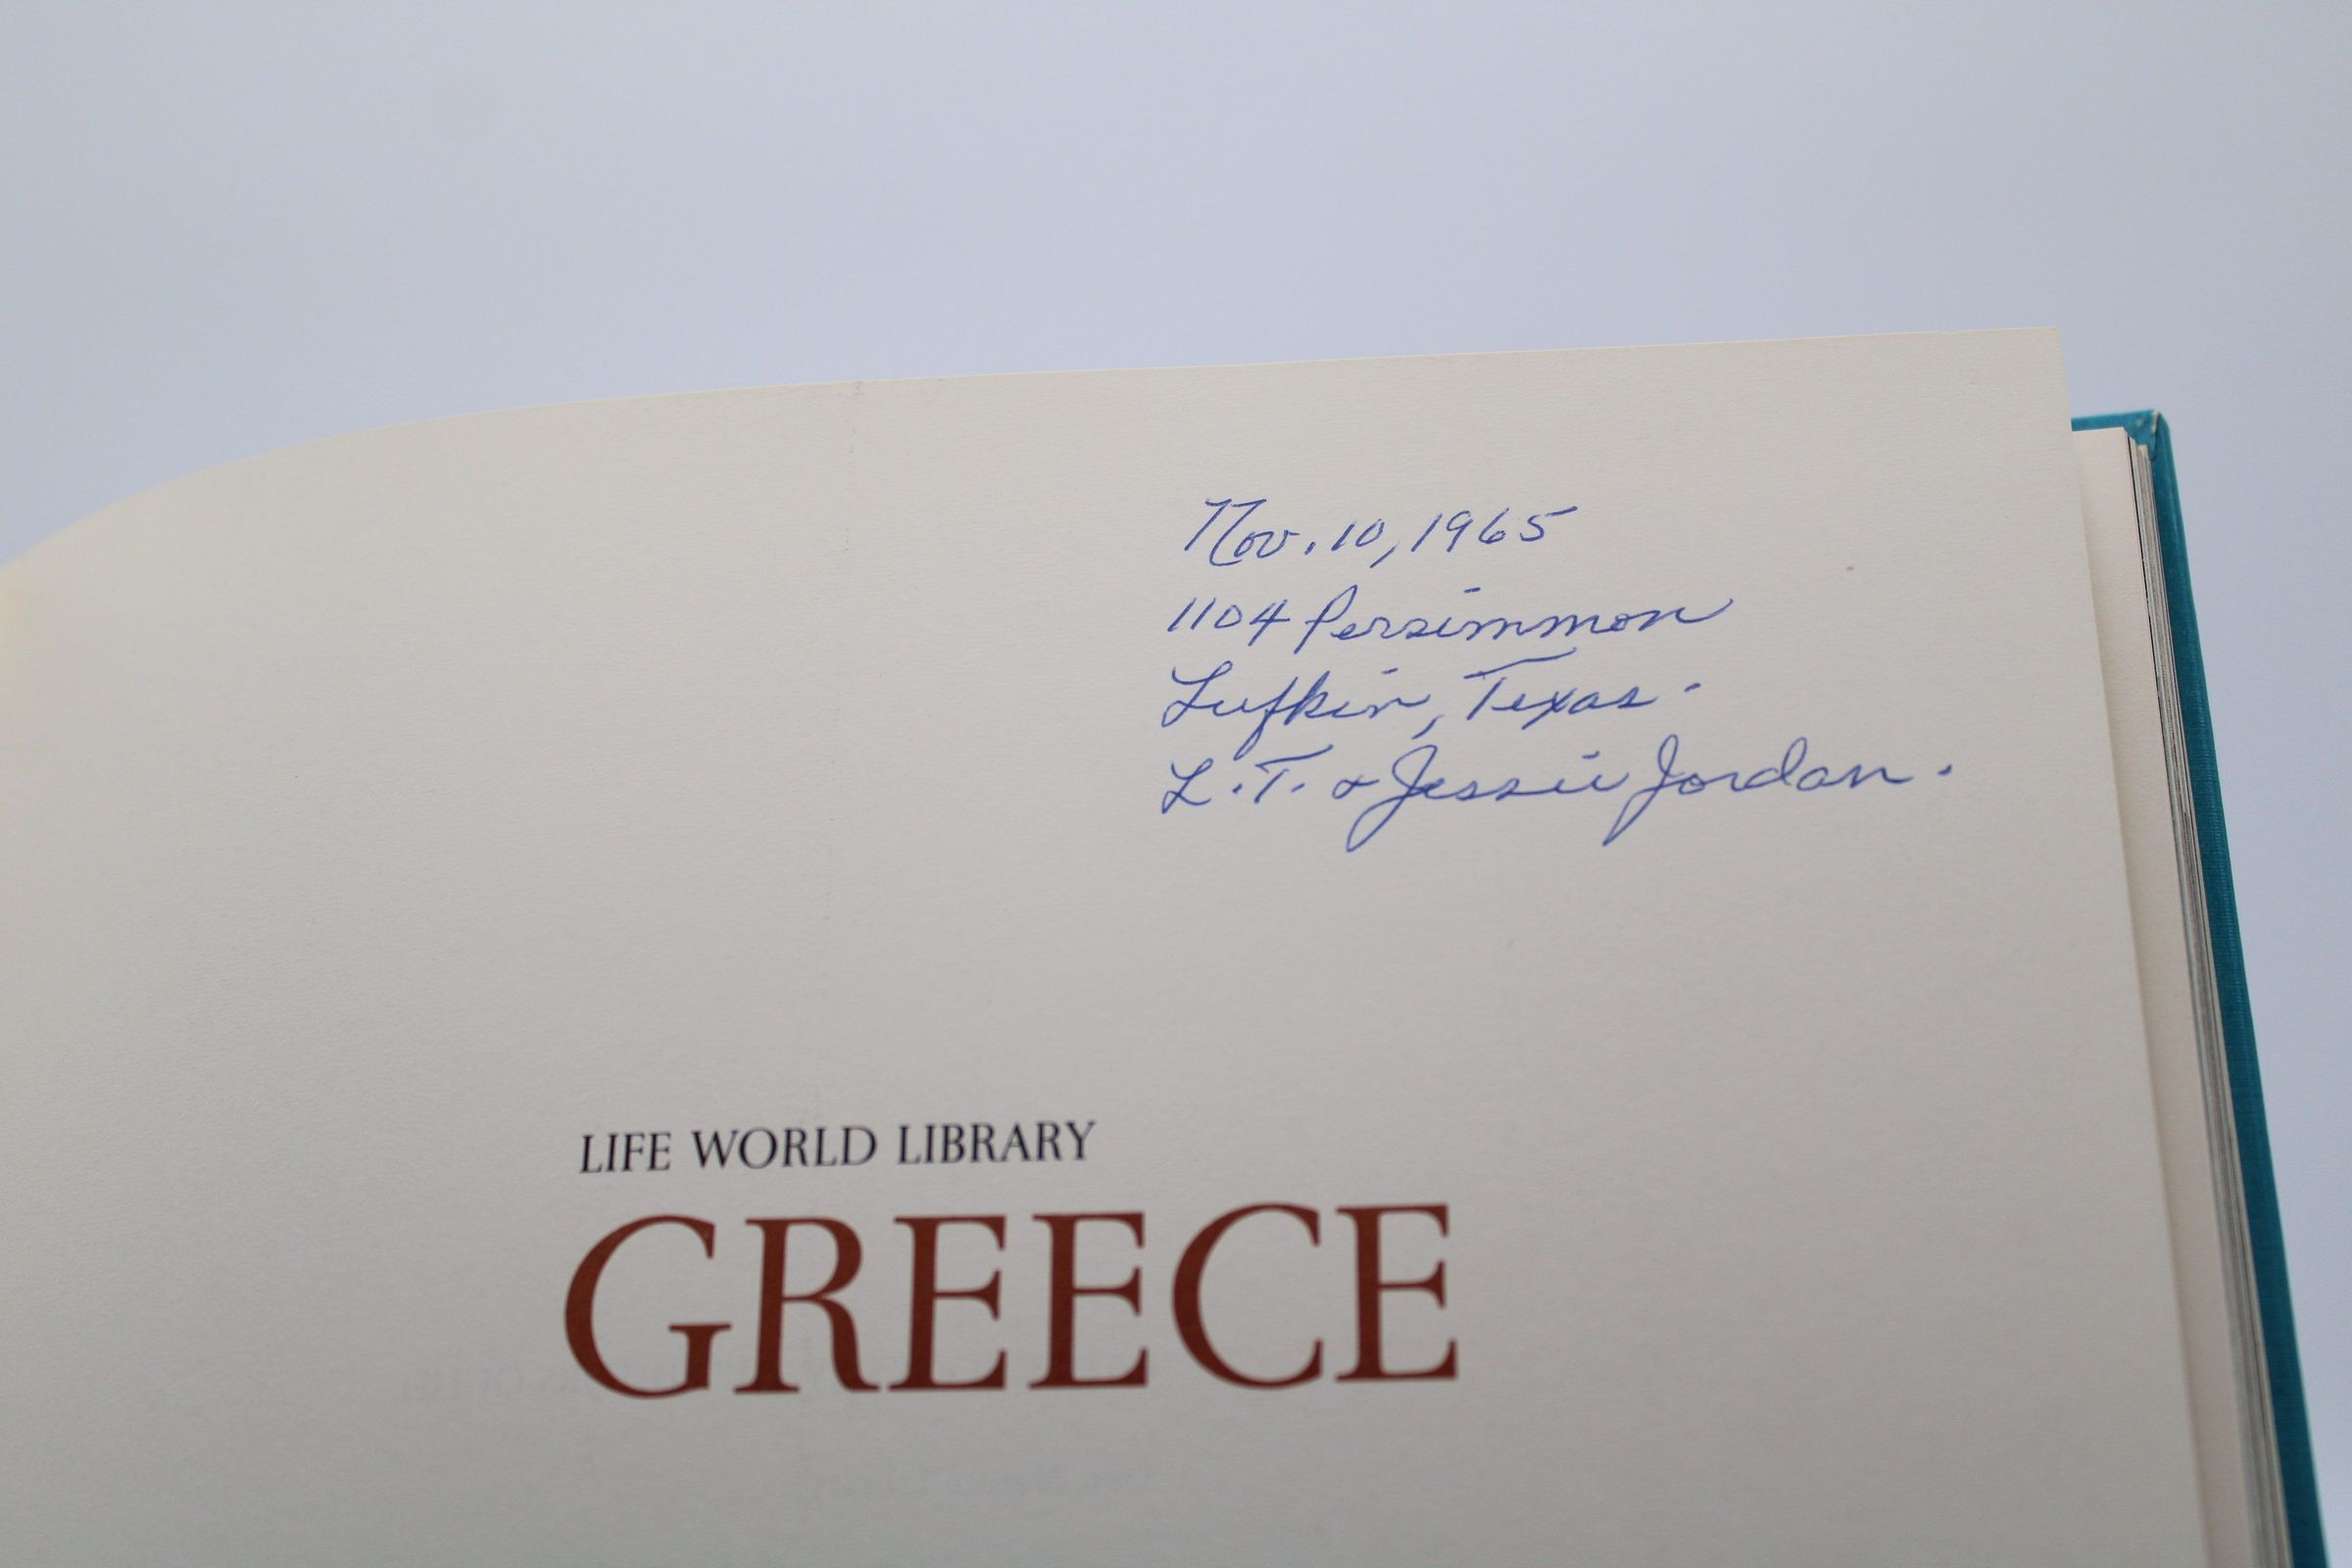 Nov. 10, 1965
1104 Persimmon
Lufkin, Texas.
L.T. & Jessie Jordan.
LIFE WORLD LIBRARY
GREECE